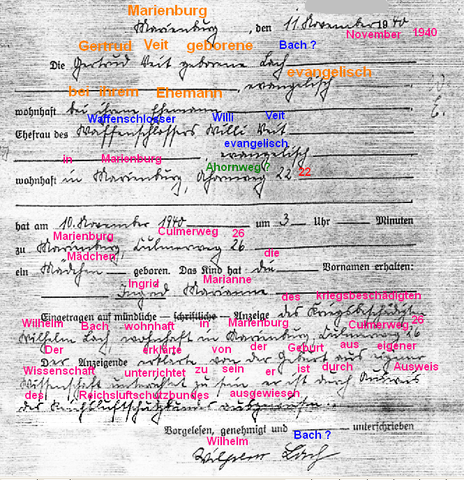 Marienburg
Marienburg, den 11. November 1940
November 1940
Gertrud Veit geborene Bach ?
Die Gertrud Veit geborene
evangelisch
evangelisch
bei ihrem Ehemann
wohnhaft bei ihrem Ehemann
Waffenschlosser Willi Veit
Ehefrau des Waffenschlossers Willi Veit
evangelisch
in Marienburg evangelisch
Ahornweg ?
wohnhaft in Marienburg, Ahornweg 22 22
hat am 10. November 1940 um 3 Uhr Minuten
Marienburg Culmerweg 26
zu Marienburg, Culmerweg 26
Mädchen die
ein Mädchen geboren. Das Kind hat die Vornamen erhalten:
Ingrid Marianne
Ingrid Marianne
des kriegsbeschädigten
Eingetragen auf mündliche – schriftliche – Anzeige des Kriegsbeschädigten
Wilhelm Bach wohnhaft in Marienburg Culmerweg 26
Wilhelm wohnhaft in Marienburg, Culmerweg 26
Der erklärte von der Geburt aus eigener
Der Anzeigende erklärte von der Geburt aus eigener
Wissenschaft unterrichtet zu sein er ist durch Ausweis
Wissenschaft unterrichtet zu sein er ist durch Ausweis
des Reichsluftschutzbundes ausgewiesen
des Reichsluftschutzbundes ausgewiesen
Vorgelesen, genehmigt und unterschrieben
Wilhelm Bach ?
Wilhelm